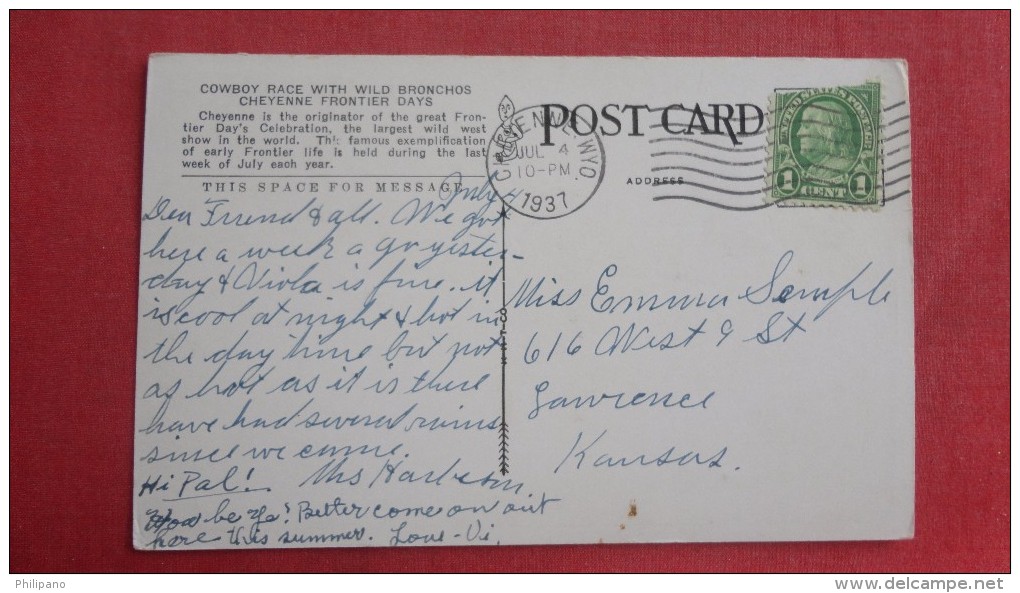 COWBOY RACE WITH WILD BRONCHOS
CHEYENNE FRONTIER DAYS
Cheyenne is the originator of the great Fron-
tier Day's Celebration, the largest wild west
show in the world. This famous exemplification
of early Frontier life is held during the last
week of July each year.
THIS SPACE FOR MESSAGE
POST CARD
ADDRESS
CHEYENNE, WYO.
JUL 4
10-PM
1937
UNITED STATES POSTAGE
1 CENT 1
July 4
Dear Friend & all. We got
here a week a go yester-
day & Viola is fine. it
is cool at night & hot in
the day time but not
as hot as it is there
have had several rains
since we came.
Mrs Harbeson
Hi Pal!
How be ya? Better come on out
here this summer. Love - Vi.
8-H
Miss Emma Semple
616 West 9 St
Lawrence
Kansas.
Philipano
www.delcampe.net